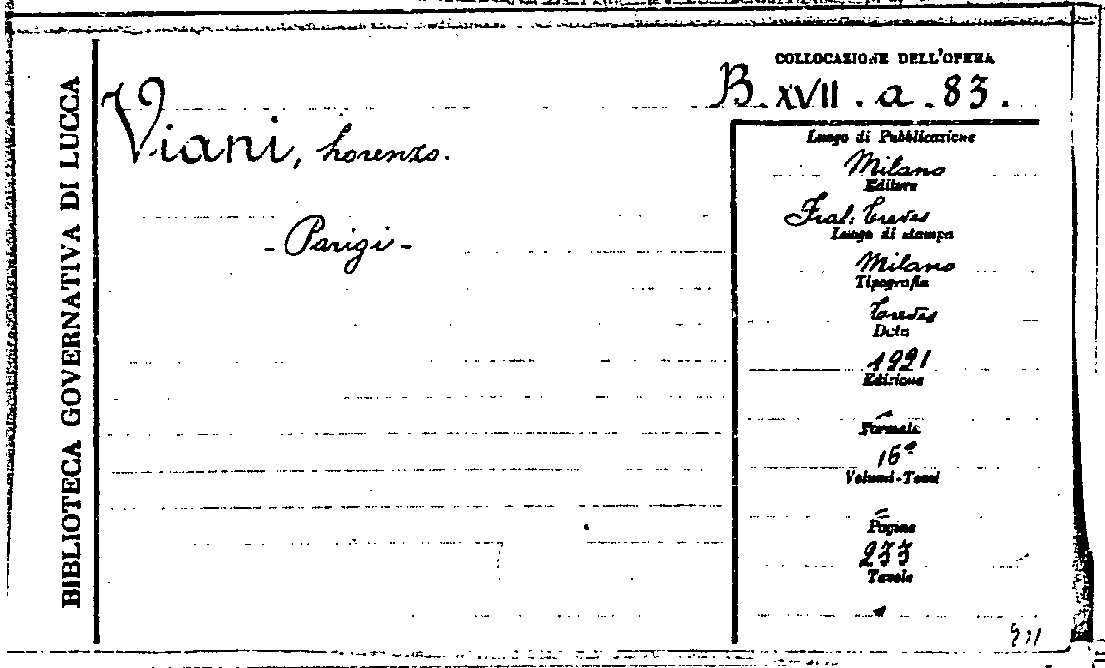 BIBLIOTECA GOVERNATIVA DI LUCCA
COLLOCAZIONE DELL'OPERA
B. XVII. a. 83.
Viani, Lorenzo.
- Parigi -
Luogo di Pubblicazione
Milano
Editore
Frat: Treves
Luogo di stampa
Milano
Tipografia
Treves
Data
Edizione
Formato
16º
Volumi-Tomi
Pagine
Tavole